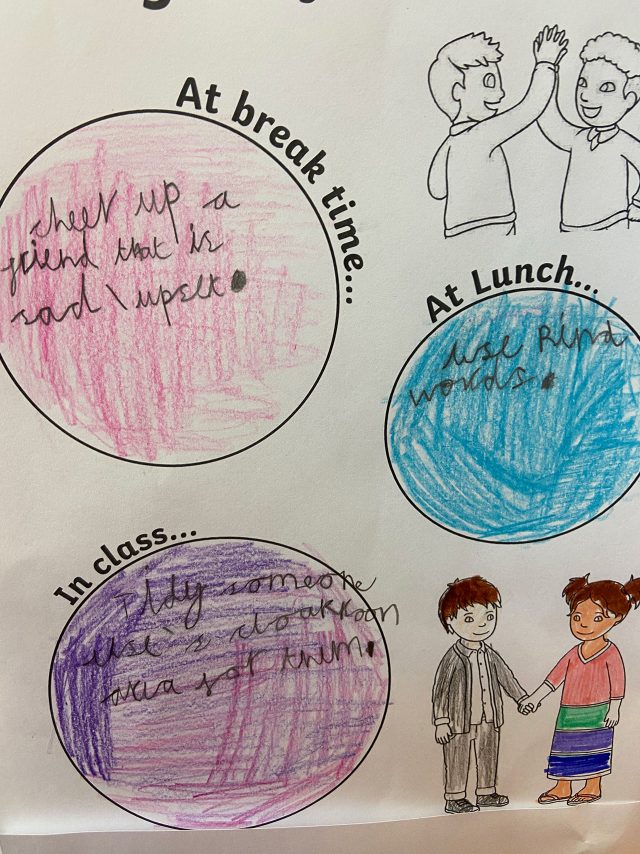 At break time...
cheer up a
friend that is
sad \ upset.
At Lunch...
use kind
words.
In class...
tidy someone
else's cloakroom
area for them.